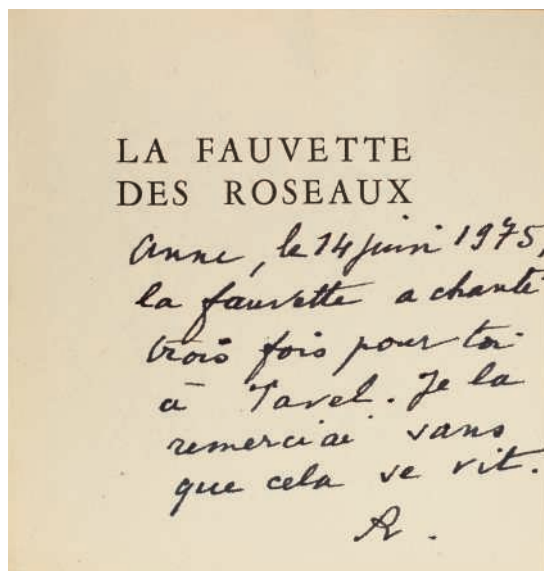 LA FAUVETTE
DES ROSEAUX
Anne, le 14 juin 1975,
la fauvette a chanté
trois fois pour toi
à Tavel. Je la
remerciai sans
que cela se vit.
R.